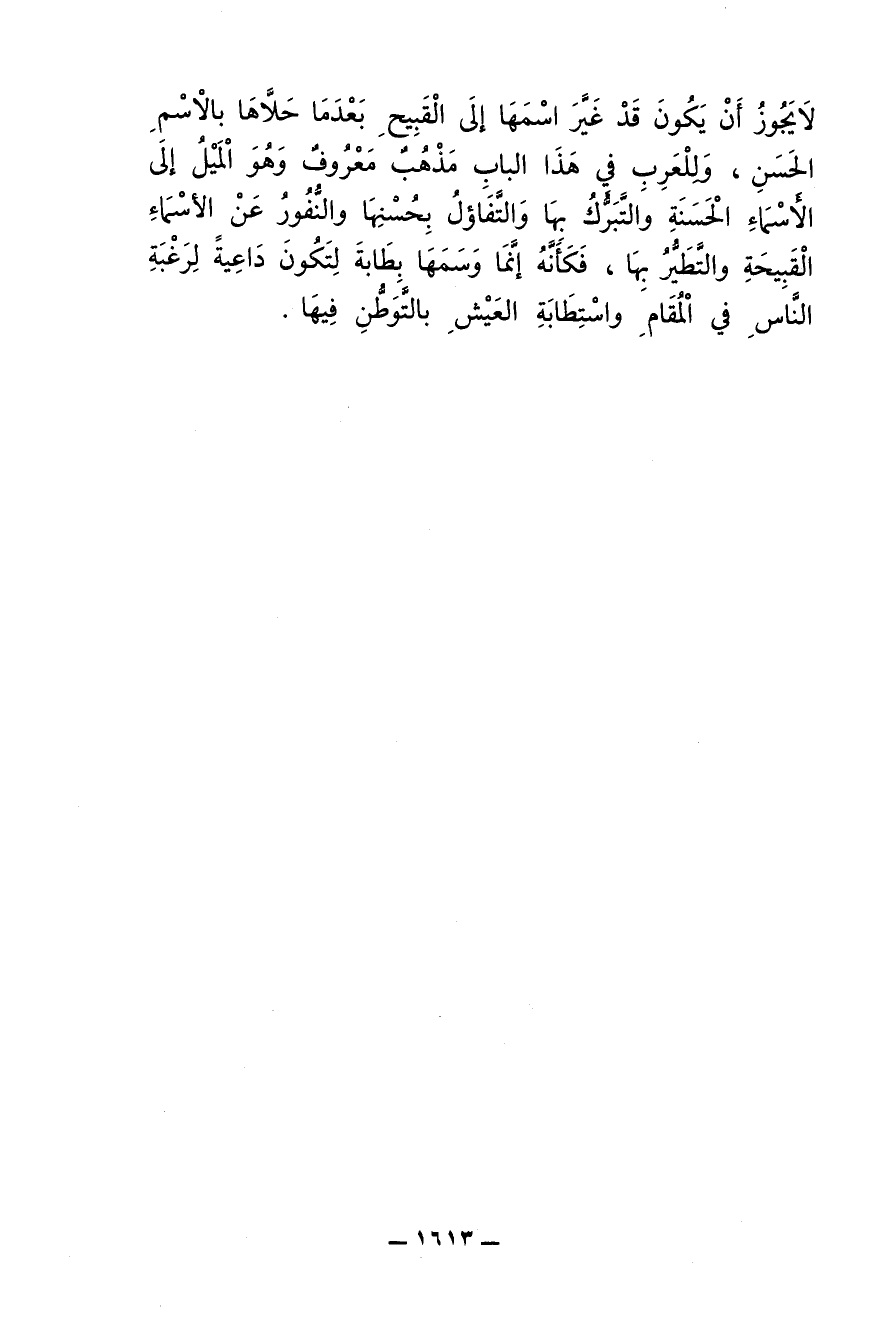 لَايَجُوزُ أَنْ يَكُونَ قَدْ غَيَّرَ اسْمَهَا إلَى الْقَبِيحِ بَعْدَمَا حَلَّاهَا بالْاسْمِ
الحَسَنِ ، وَلِلْعَربِ فِي هَذَا البابِ مَذْهُبٌ مَعْرُوفٌ وَهُوَ الْمَيْلُ إلَى
الأَسْمَاءِ الْحَسَنَةِ والتَّبَرُّكُ بِهَا وَالتَّفَاؤلُ بِحُسْنِهَا والنُّفُورُ عَنْ الأسْمَاءِ
الْقَبِيحَةِ والتَّطَيُّرُ بِهَا ، فَكَأَنَّهُ إنَّمَا وَسَمَهَا بِطَابةَ لِتَكُونَ دَاعِيةً لِرَغْبَةِ
النَّاسِ في الْمُقَامِ واسْتِطَابَةِ العَيْشِ بالتَّوَطُّنِ فِيهَا .
— ١٦١٣ —